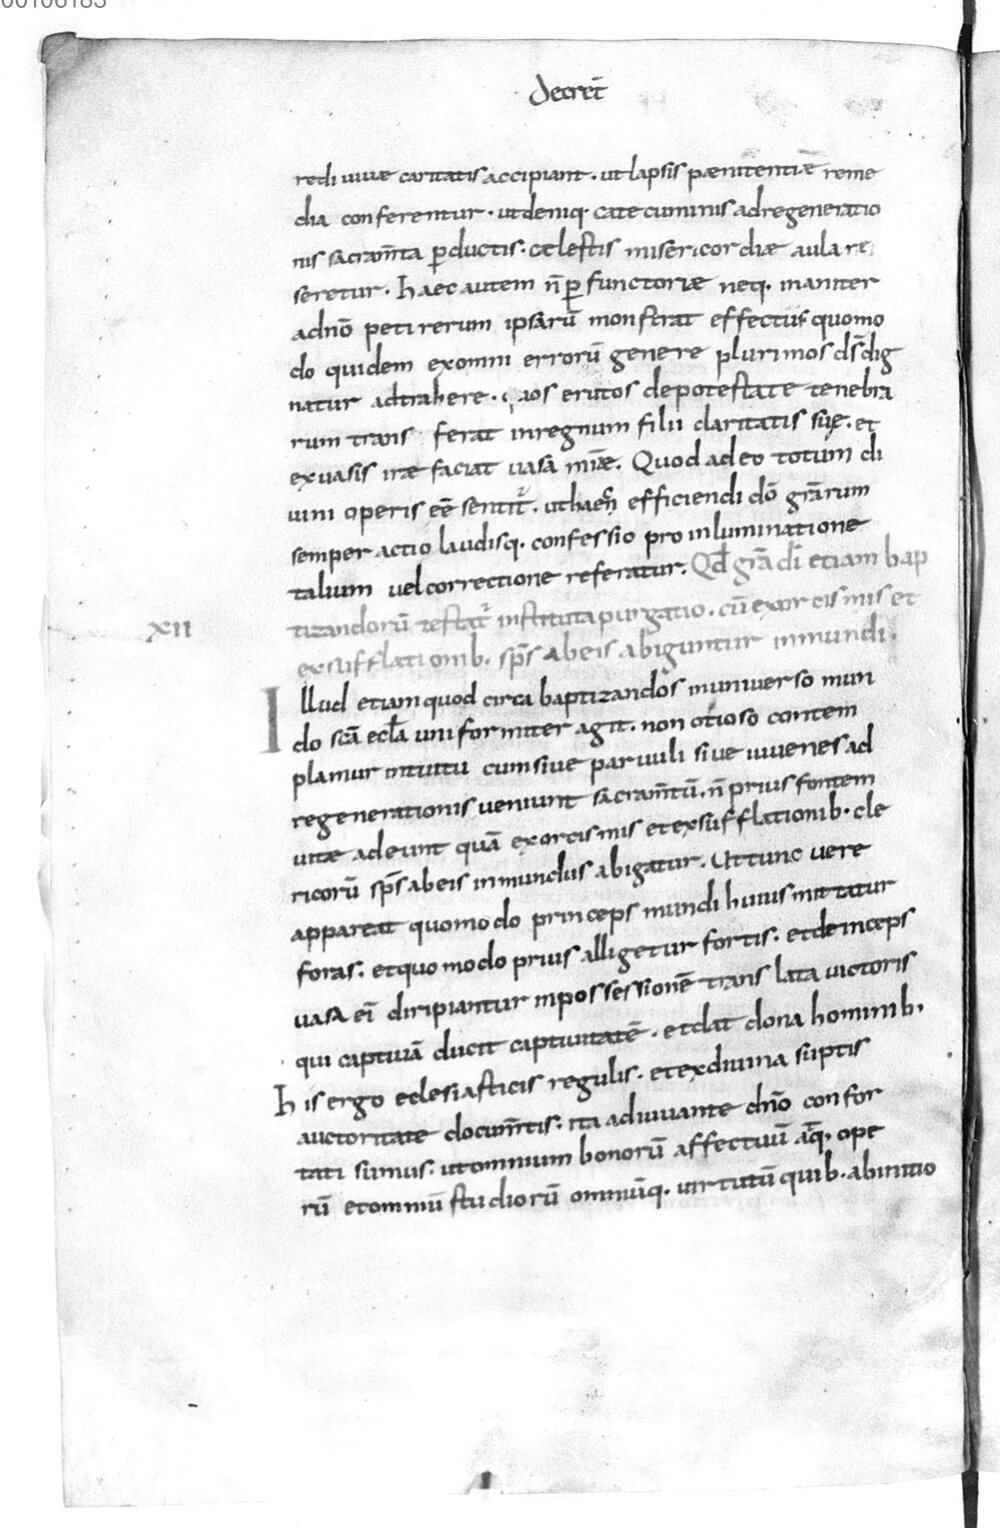 00106183
decret̄
redi uiuae caritatis accipiant · ut lapsis paenitentiae reme
dia conferentur · ut deniq· catecuminis ad regeneratio
nis sacram̄ta ꝑductis · caelestis misericordiae aula re
seretur · haec autem n̄ ꝑfunctoriae neq· inaniter
a dn̄o peti rerum ipsarū monstrat effectus quomo
do quidem ex omni errorū genere plurimos ds̄ dig
natur adtrahere · quos erutos de potestate tenebra
rum transferat in regnum filii claritatis suę · et
ex uasis irae faciat uasa miae̅. Quod adeo totum di
uini operis eē sentit᷑ · ut haec efficiendi dō grārum
semper actio laudisq· confessio pro inluminatione
talium uel correctione referatur. Qd̄ grā dī etiam bap
XII
tizandorū testat᷑ instituta purgatio · cū exorcismis et
exsufflationib· sp̄s ab eis abiguntur inmundi ·
Illud etiam quod circa baptizandos in uniuerso mun
do scā eccl̄a uniformiter agit · non otioso contem
plamur intuitu cum siue paruuli siue iuuenes ad
regenerationis ueniunt sacram̄tū · n̄ prius fontem
uitae adeunt quā exorcismis et exsufflationib· cle
ricorū sp̄s ab eis inmundus abigatur · Ut tunc uere
appareat quomodo princeps mundi huius mittatur
foras · et quomodo prius alligetur fortis · et deinceps
uasa eī diripiantur in possessionē translata uictoris
qui captiuā ducit captiuitatē · et dat dona hominib·
His ergo eclesiasticis regulis · et ex diuina sūptis
auctoritate docum̄tis · ita adiuuante dn̄o confor
tati sumus · ut omnium bonorū affectuū atq· ope
rū et omniū studiorū omniūq· uirtutū quib· ab initio